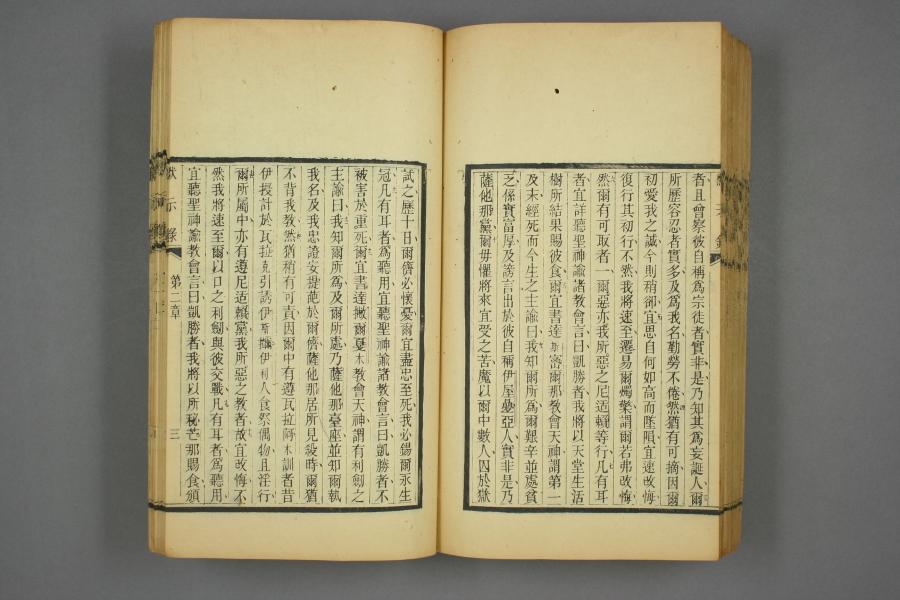 者且會察彼自稱爲宗徒者實非是乃知其爲妄誕人爾
所歷容忍者實多及爲我名勤勞不倦然猶有可摘因爾
初愛我之誠今則稍卻宜思自何如高而墜隕宜速改悔
復行其初行不然我將速至遷易爾燭檠謂爾若弗改悔
然爾有可取者一爾惡亦我所惡之尼适賴等行凡有耳
者宜詳聽聖神諭諸教會言曰凱勝者我將以天堂生活
樹所結果賜彼食爾宜書達斯密爾那教會天神謂第一
及末經死而今生之主諭曰我知爾所爲爾艱辛並處貧
乏係實富厚及謗言出於彼自稱伊屋叠亞人實非是乃
薩他那黨爾毋懼將來宜受之苦魔以爾中數人囚於獄
試之歷十日爾儕必懷憂爾宜盡忠至死我必錫爾永生
冠凡有耳者爲聽用宜聽聖神諭諸教會言曰凱勝者不
被害於重死爾宜書達撇爾戛木教會天神謂有利劍之
主諭曰我知爾所爲及爾所處乃薩他那臺座並知爾執
我名及我忠證安提葩於爾儕薩他那居所見殺時爾猶
不背我教然猶稍有可責因爾中有遵瓦拉阿木訓者昔
伊授計於瓦拉克引誘伊斯拉伊利人食祭偶物且淫行
爾所屬中亦有遵尼适賴黨我所惡之教者故宜改悔不
然我將速至爾以口之利劍與彼交戰凡有耳者爲聽用
宜聽聖神諭教會言曰凱勝者我將以所秘芒那賜食頒
示錄
第二章
三